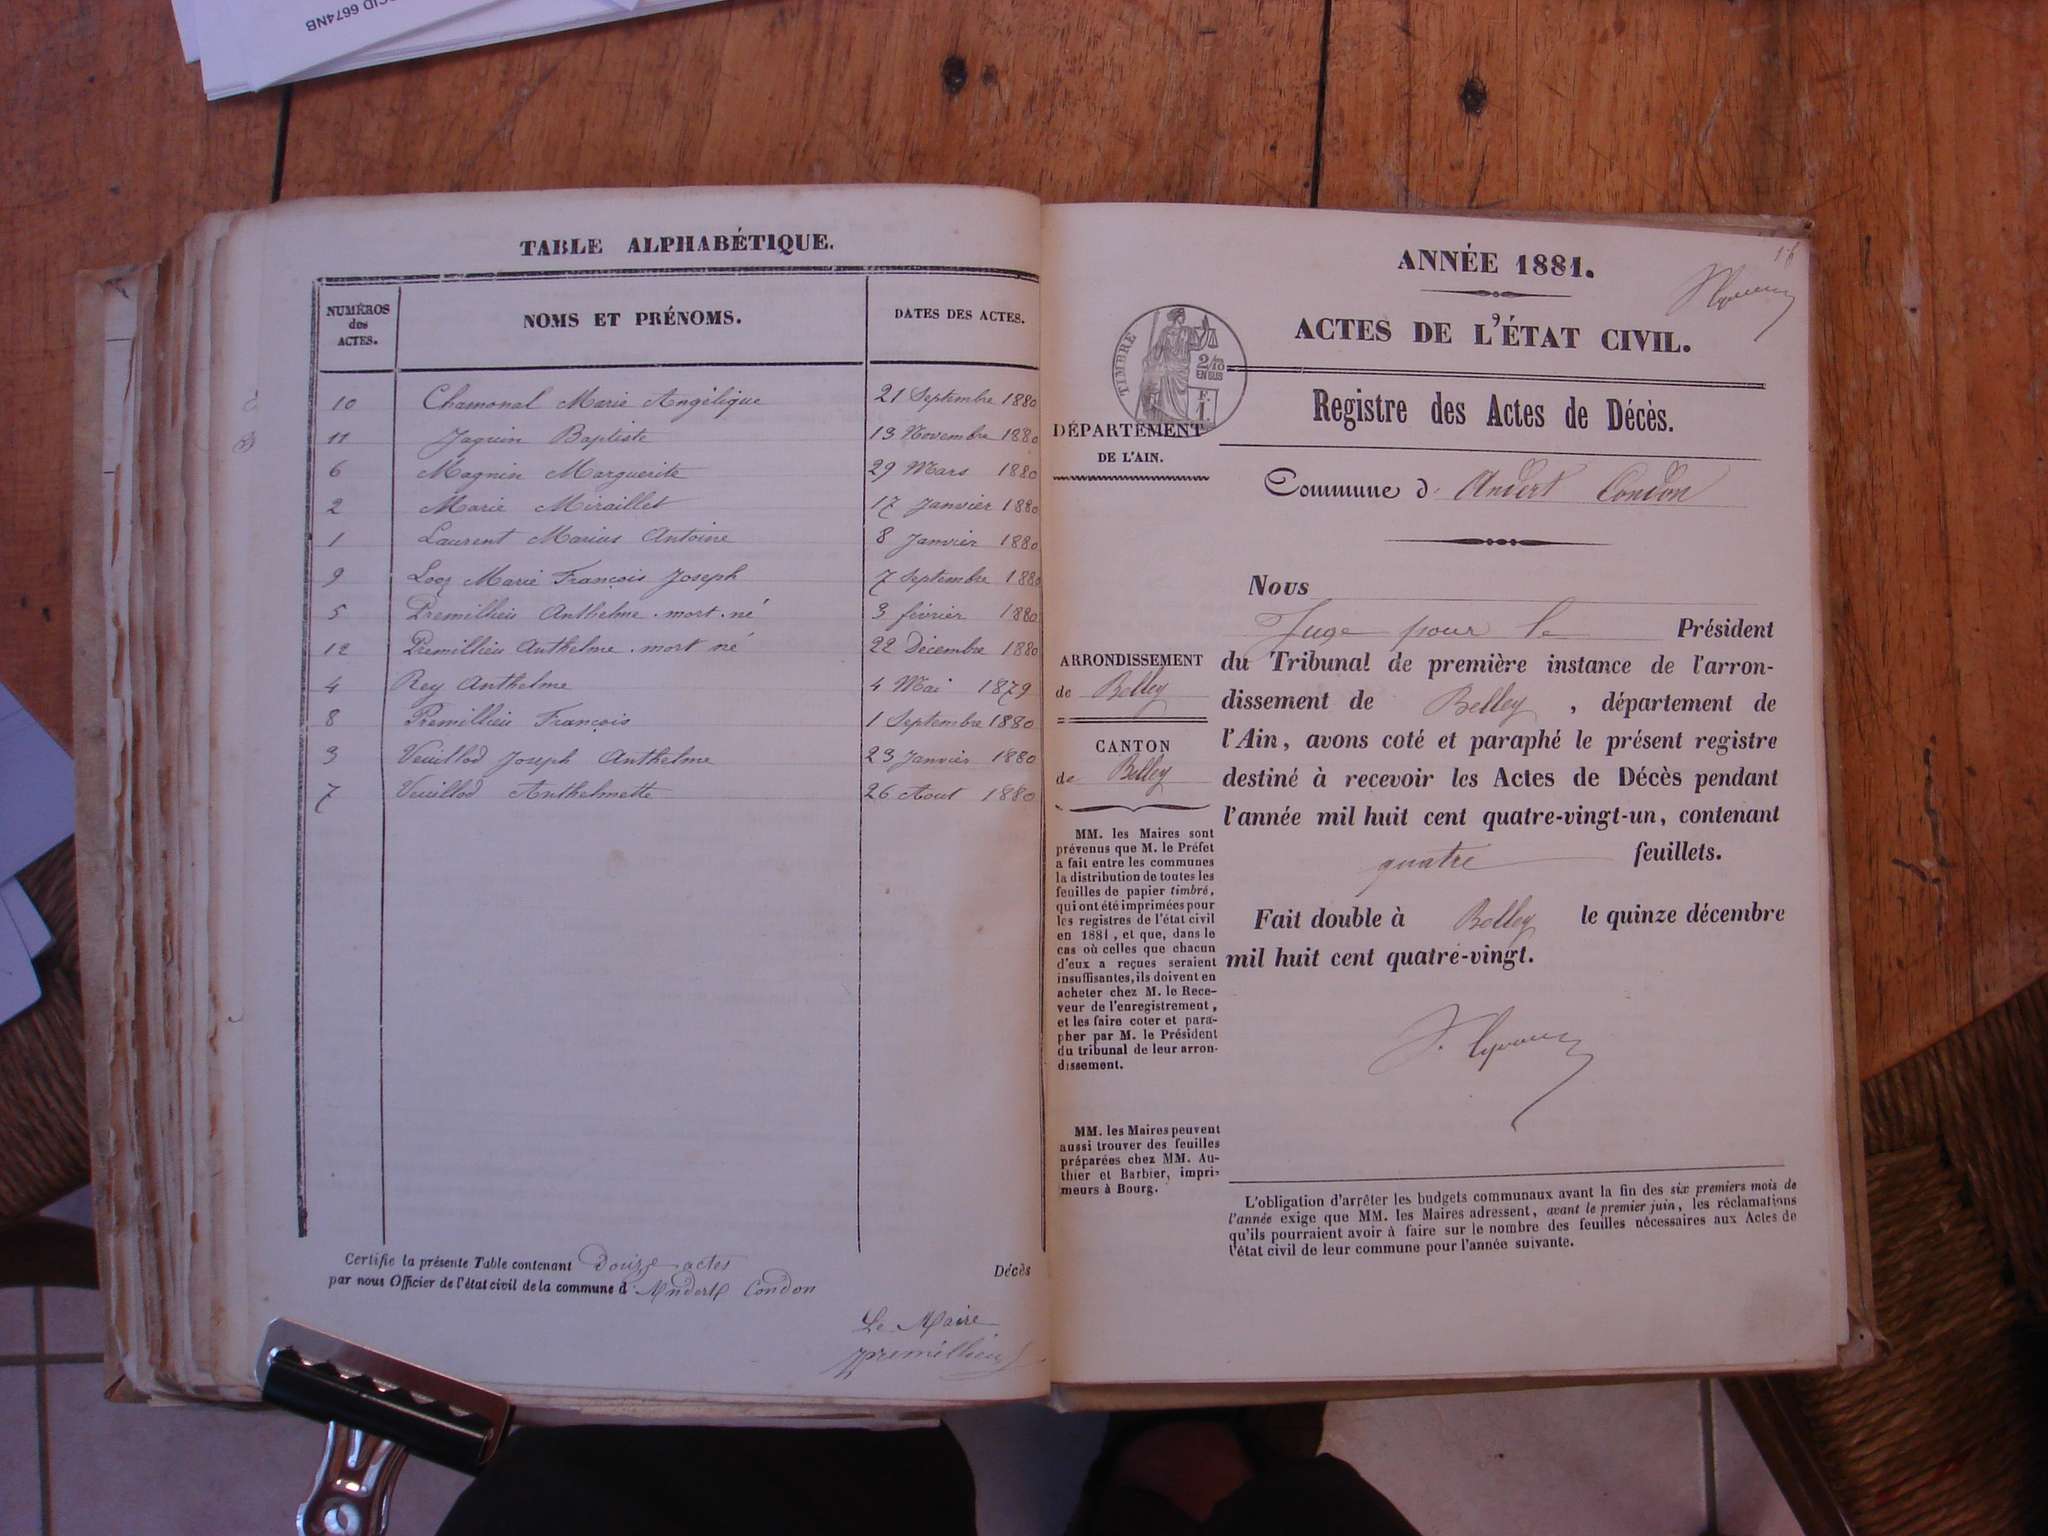 6674NB
TABLE ALPHABÉTIQUE.
NUMÉROS
des
ACTES.
NOMS ET PRÉNOMS.
DATES DES ACTES.
10 Chamonal Marie Angélique 21 Septembre 1880
11 Jaquin Baptiste 13 Novembre 1880
6 Magnin Marguerite 29 Mars 1880
2 Marie Miraillet 17 Janvier 1880
1 Laurent Marius Antoine 8 Janvier 1880
9 Marie François Joseph 7 Septembre 1880
5 Premillieu Anthelme . mort . né 3 février 1880
12 Premillieu Anthelme . mort né 22 Décembre 1880
4 Rey Anthelme 4 Mai 1879
8 Premillieu François 1 Septembre 1880
3 Veuillod Joseph Anthelme 23 Janvier 1880
7 Veuillod Anthelmette 26 Aout 1880
Certifie la présente Table contenant Douze actes Décès
par nous Officier de l'état civil de la commune d Andert Condon
Le Maire
premillieu
ANNÉE 1881.
ACTES DE L'ÉTAT CIVIL.
TIMBRE
2/10
EN SUS
Registre des Actes de Décès.
DÉPARTEMENT
DE L'AIN.
Commune d' Andert Condon
ARRONDISSEMENT
de Belley
CANTON
de Belley
MM. les Maires sont
prévenus que M. le Préfet
a fait entre les communes
la distribution de toutes les
feuilles de papier timbré,
qui ont été imprimées pour
les registres de l'état civil
en 1881, et que, dans le
cas où celles que chacun
d'eux a reçues seraient
insuffisantes, ils doivent en
acheter chez M. le Rece-
veur de l'enregistrement,
et les faire coter et para-
pher par M. le Président
du tribunal de leur arron-
dissement.
MM. les Maires peuvent
aussi trouver des feuilles
préparées chez MM. Au-
thier et Barbier, impri-
meurs à Bourg.
Nous
Juge pour le Président
du Tribunal de première instance de l'arron-
dissement de Belley, département de
l'Ain, avons coté et paraphé le présent registre
destiné à recevoir les Actes de Décès pendant
l'année mil huit cent quatre-vingt-un, contenant
quatre feuillets.
Fait double à Belley le quinze décembre
mil huit cent quatre-vingt.
L'obligation d'arrêter les budgets communaux avant la fin des six premiers mois de
l'année exige que MM. les Maires adressent, avant le premier juin, les réclamations
qu'ils pourraient avoir à faire sur le nombre des feuilles nécessaires aux Actes de
l'état civil de leur commune pour l'année suivante.